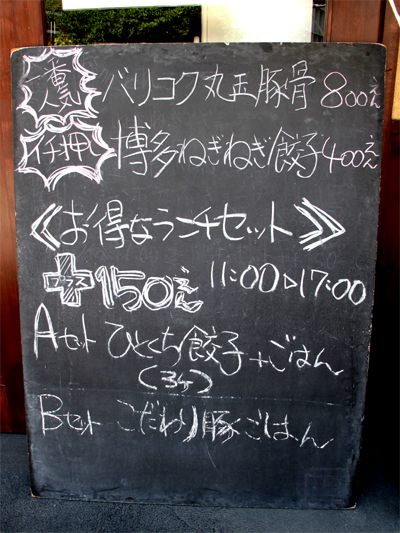 一番人気 バリコク丸玉豚骨 800え
イチ押 博多ねぎねぎ餃子 400え
《お得なランチセット》
プラス150え 11:00▷17:00
Aセット ひとくち餃子+ごはん
(3ヶ)
Bセット こだわり豚ごはん